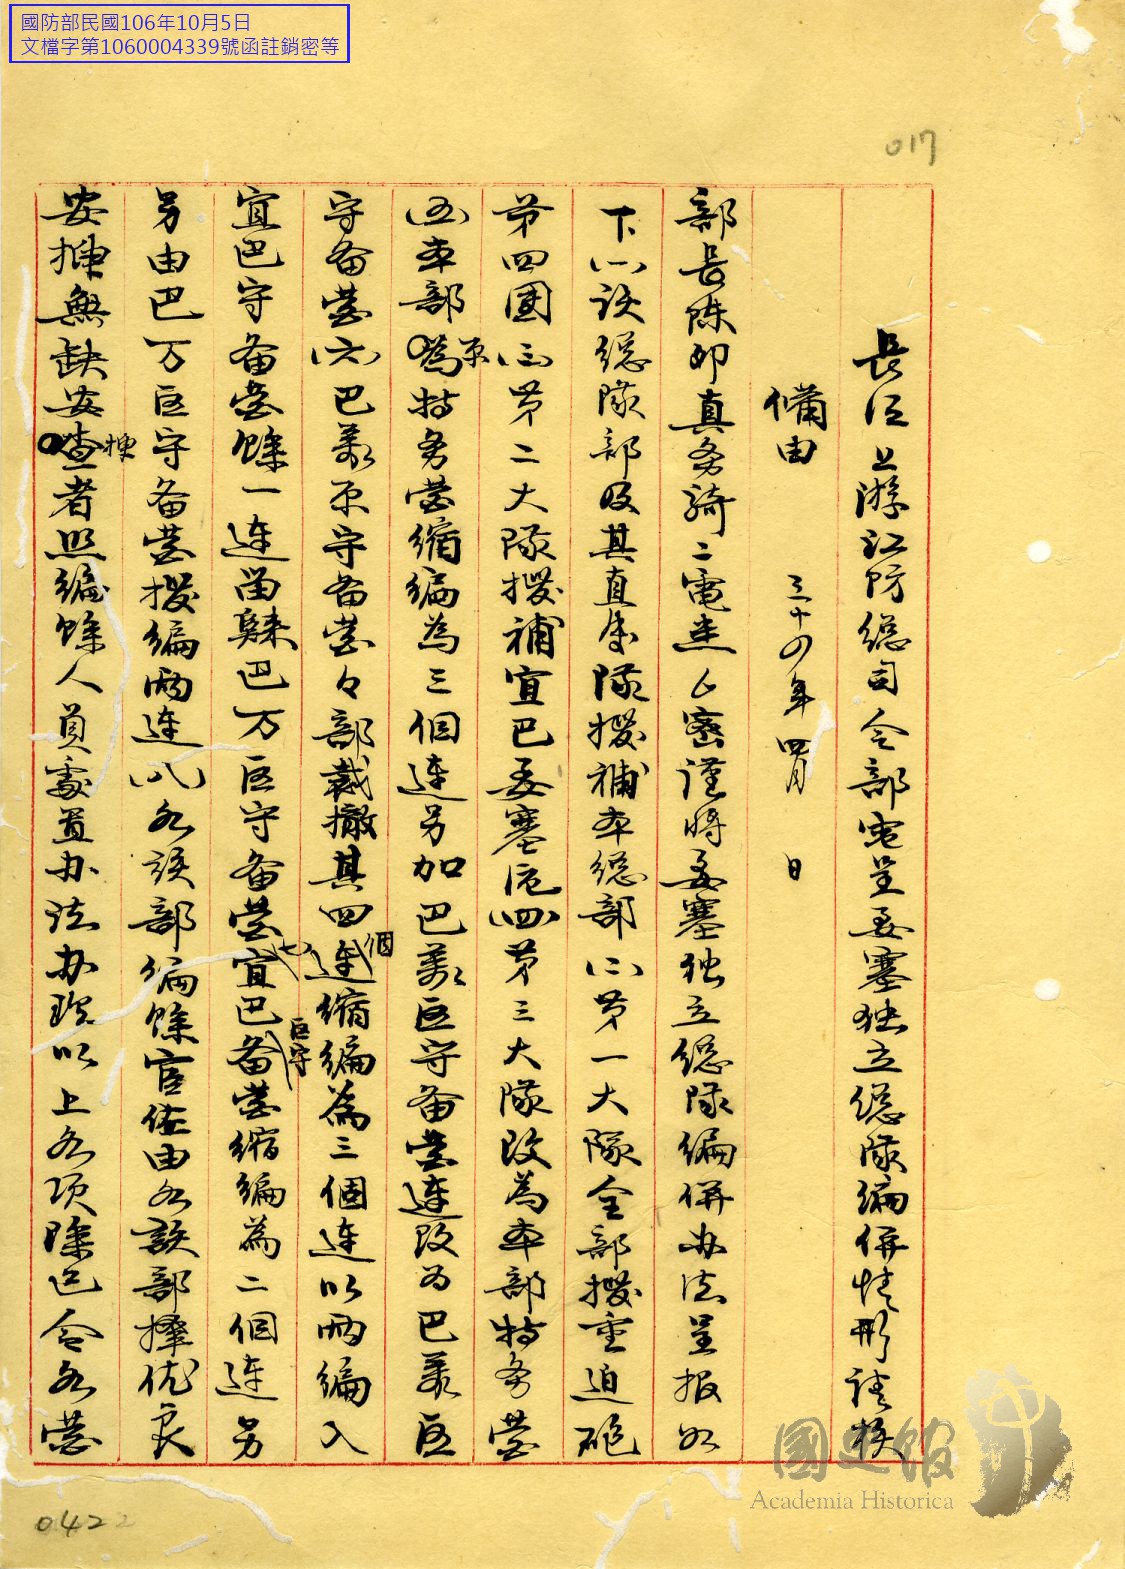 國防部民國106年10月5日
文檔字第1060004339號函註銷密等
017
長江上游江防總司令部電呈要塞独立總隊編併情形請核
備由 三十四年四月 日
部長陳卯真务騎二電悉厶密謹將要塞独立總隊編併办法呈报如
下(一)該總隊部及其直屬隊撥補本總部(二)第一大隊全部撥重迫砲
第四團(三)第二大隊撥補宜巴要塞區(四)第三大隊改為本部特务營
(五)本部原為特务營縮編為三個連另加巴萬區守备營連改为巴萬區
守备營(六)巴萬原守备營々部裁撤其四個連縮編為三個連以兩編入
宜巴守备營餘一連留隸巴万區守备營(七)宜巴區守备營縮編為二個連另
另由巴万區守备營撥編兩連(八)各該部編餘官佐由各該部擇优良
安插無缺安插者照編餘人員處置办法办理以上各項除已令各營
0422
國史館
Academia Historica